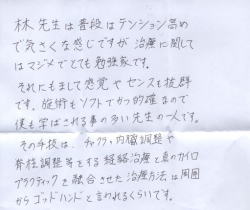 林先生は普段はテンション高め
で気さくな感じですが治療に関して
はマジメでとても勉強家です。
それにもまして感覚やセンスも抜群
です。施術もソフトでかつ的確なので
僕も学ばされる事の多い先生の一人です。
その手技は、チャクラ、内臓調整や
脊柱調整等をする経絡治療と真のカイロ
プラクティックを融合させた治療方法は周囲
からゴッドハンドと言われるくらいです。